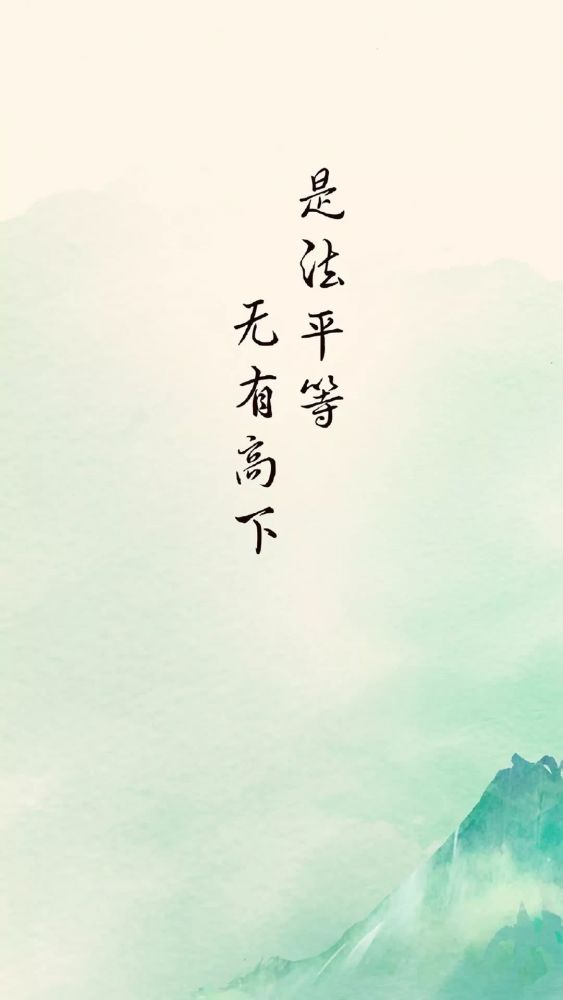 是法平等
无有高下